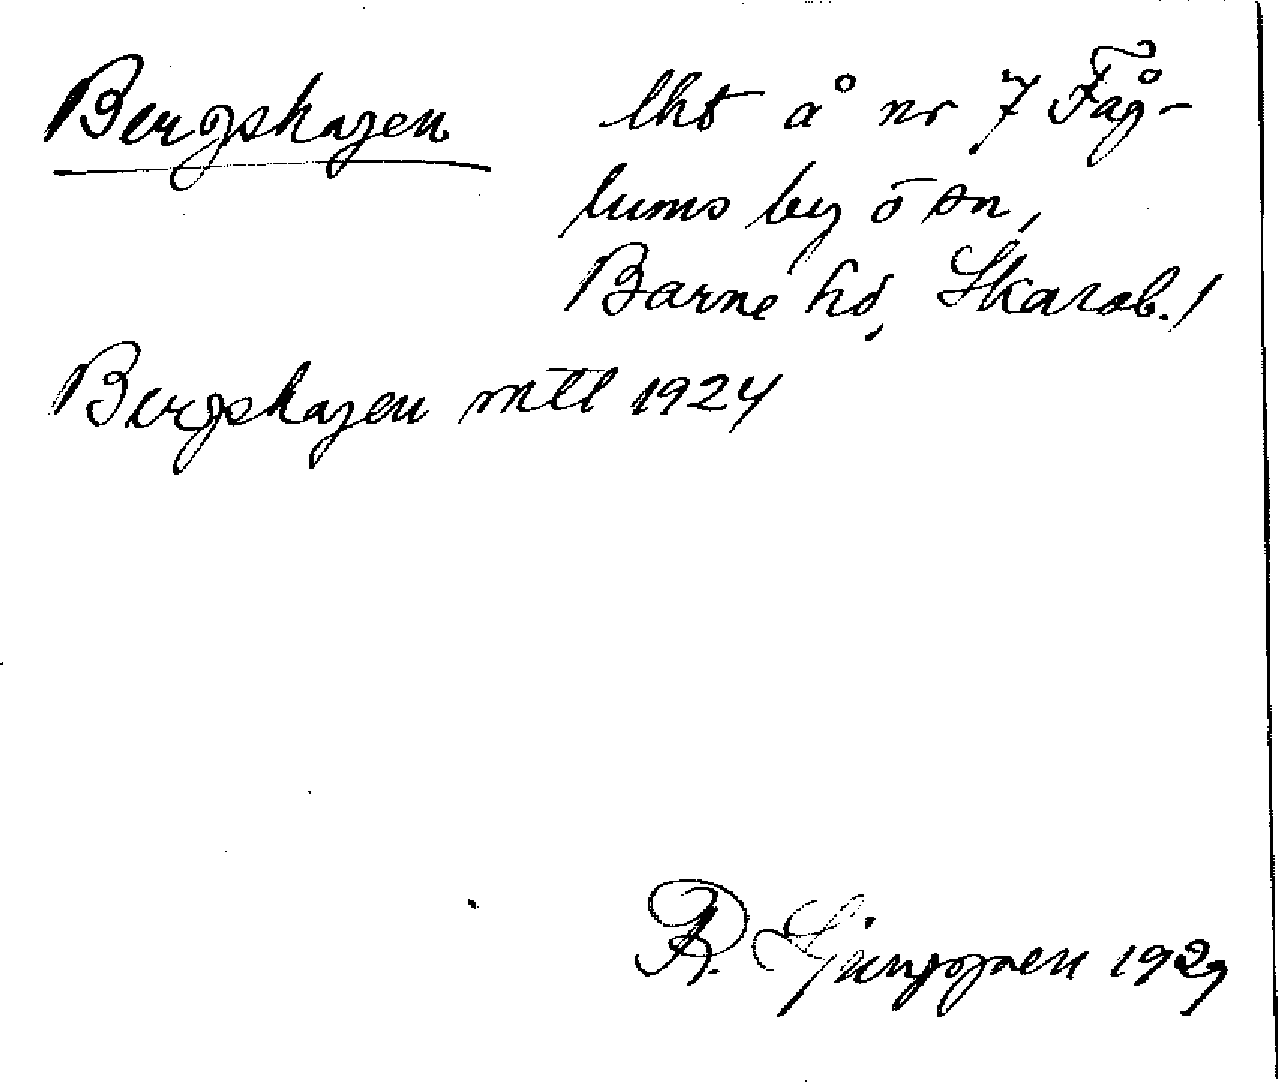 Bergshagen lht å nr 7 Fåg-
lums by o sn,
Barne hd, Skarab.l
Bergshagen mtl 1924
R. Ljunggren 1929